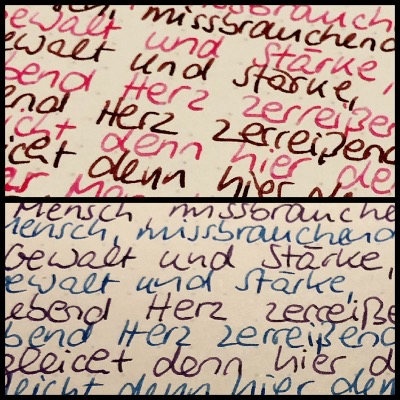 missbrauch
missbrauchend
ewalt und Stärke,
ewalt und Stärke,
bend Herz zerreißen
end Herz zerreißend
icht denn hier de
icet denn hier de
Mensch missbrauche
Mensch, missbrauchend
Gewalt und Stärke,
ewalt und Stärke,
ebend Herz zerreiße
bend Herz zerreißend
gleicet denn hier d
leicht denn hier den